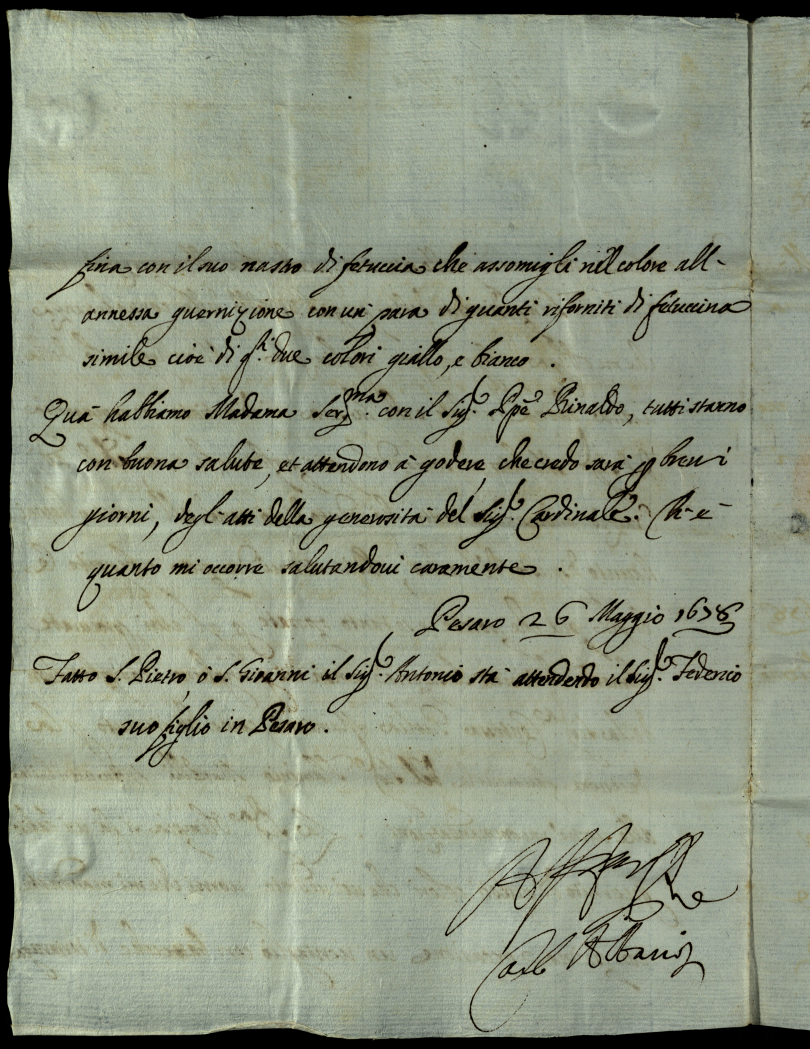 fina con il suo nastro di fetuccia che assomigli nel colore all-
annessa guernizione con un para di guanti riforniti di fetuccina
simile cioè di q.ti due colori giallo, e bianco .
Quà habbiamo Madama Ser.ma con il Sig.r Ppe Rinaldo, tutti stanno
con buona salute, et attendono à godere, che credo sarà p brevi
giorni, degl'atti della generosità del Sig.r Cardinale. Ch-è
quanto mi occorre salutandovi caramente .
Pesaro 26 Maggio 1678
Fatto S. Pietro, ò S. Giovanni il Sig.r Antonio stà attendendo il Sig.r Federico
suo figlio in Pesaro .
Carlo Albani